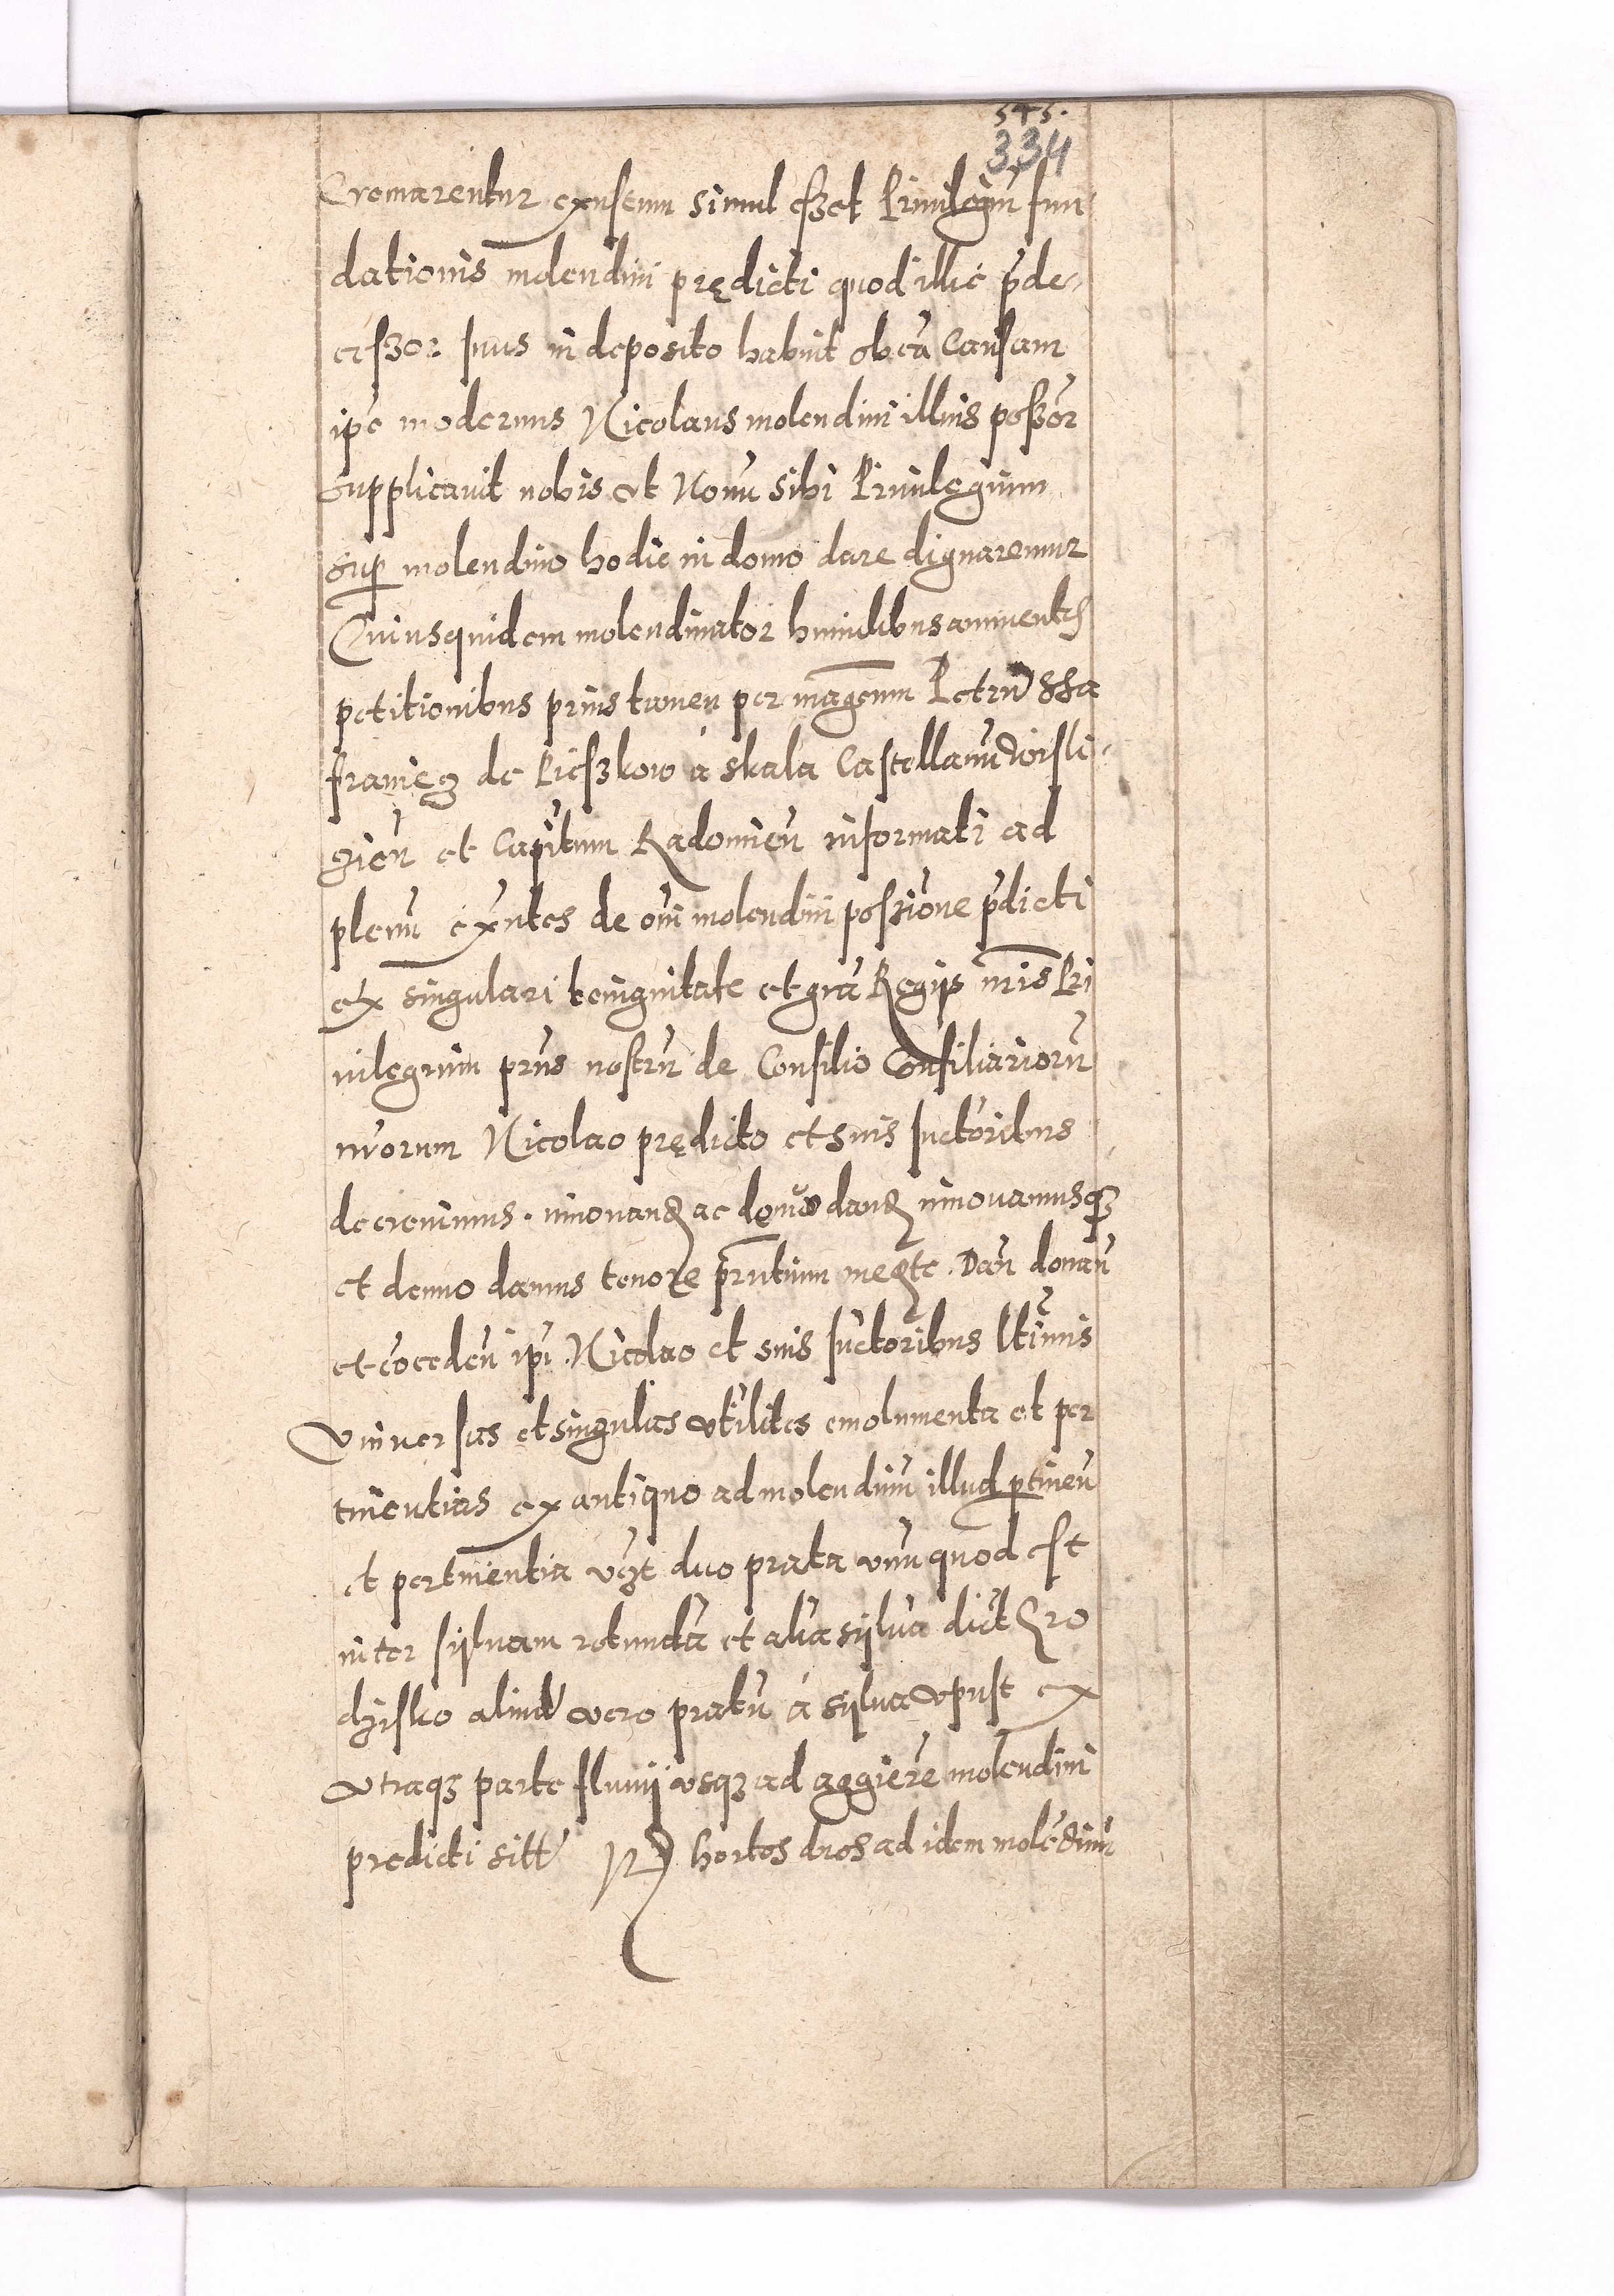 545.
334
Cremarentur exustum simul eszet Privilegiū fun
dationis molendini prędicti quod illuc p̄de
ceszor suus in deposito habuit ob eā causam
ip̄e modernus Nicolaus molendini illius poszor
supplicavit nobis vt Novū sibi Privilegium
sup molendino hodie in domo dare dignaremur
Cuiusquidem molendinator humilibus annuentes
petitionibus prius tamen per magcum Petrū Sza
franiecz de Pieszkow á skala Castellanū Voisli
zien̄ et Capitm Radomien̄ informati ad
plenū exn̄tes de om̄i molendini poszione p̄dicti
ex singulari benignitate et gr̄a Regijs nr̄is Pri
uilegium prius nostrū de Consilio Consiliariorū
nr̄orum Nicolao prędicto et suis suctoribus
decrevimus innouand ac denuo dand innouamusq3
et denuo damus tenore prn̄tium me᷑te. Dan̄ donan̄
et co͞ceden̄ ip̄i Nicolao et suis suctoribus ltimis
vniuersas et singulas vtilites emolumenta et per
tinentias ex antiquo ad molendinū illud ptinen̄
et pertinentia vczt duo prata vnū quod est
inter syluam rotundā et aliā syluā dict Gro
dzisko aliud vero pratū á sylua vpust ex
vtraq3 parte fluuij vsq3 ad aggerē molendini
predicti sitt hortos duos ad idem molēdinū